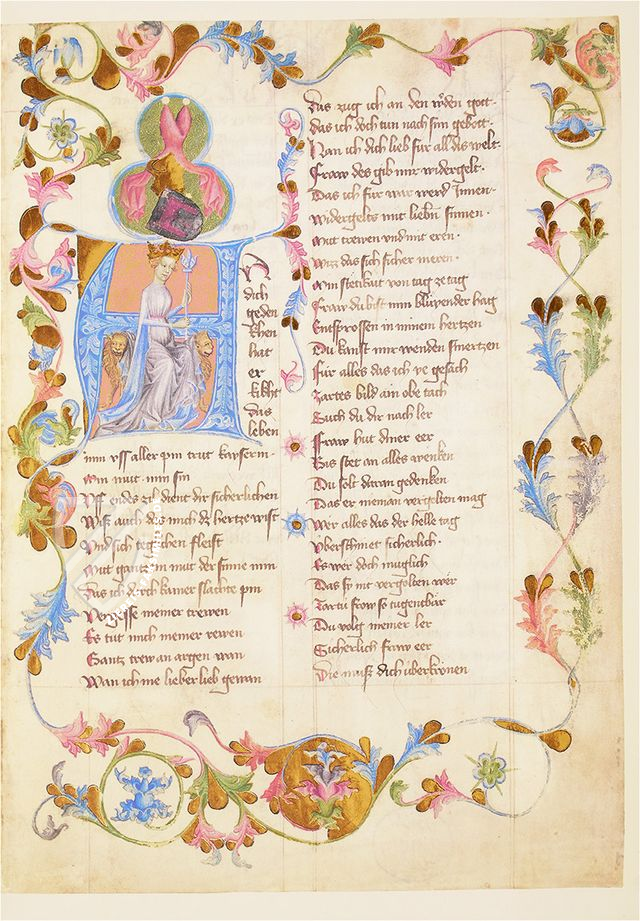 dich
geden
khen
hat
er
kikht
das
leben
min uss aller pin trut kayserin
min mut min sin
Uff endes zil dient dir sicherlichen
Wiss auch das mich dz hertze wist
Und sich tegchen fleist
Mut gantz im mut der sinne min
das ich durch kainer slachte pin
Vergesse niemer trewen
Es tut mich niemer rewen
Gantz trew an argen wan
Wan ich nie lieber lieb gewan
das zug ich an den woden gott
das ich doch tun nach sim gebott
Wan ich dich lieb für all dis welt
fraw des gib mir widergelt
Das ich für war werd Innen
Widergelts mit liebn sinnen
Mit trewen und mit eren
Wiss das sich sicher meren
Min stetikait von tag ze tag
fraw du bist min blüyender hag
Entsprossen in minem hertzen
Du kanst mir wenden smertzen
für alles das ich ye gesach
Zartes bild ain obe tach
Such du dir nach ler
fraw hut diner eer
Bis stet an alles wenken
Du solt daran gedenken
Das er nieman vergolten mag
Wer alles das der helle tag
Überschinet sicherlich
Es wer doch muglich
Das sy nit vergolten wer
Zartu frow so tugentbär
Du volg niemer ler
Sicherlich fraw eer
Die muss dich überkrönen